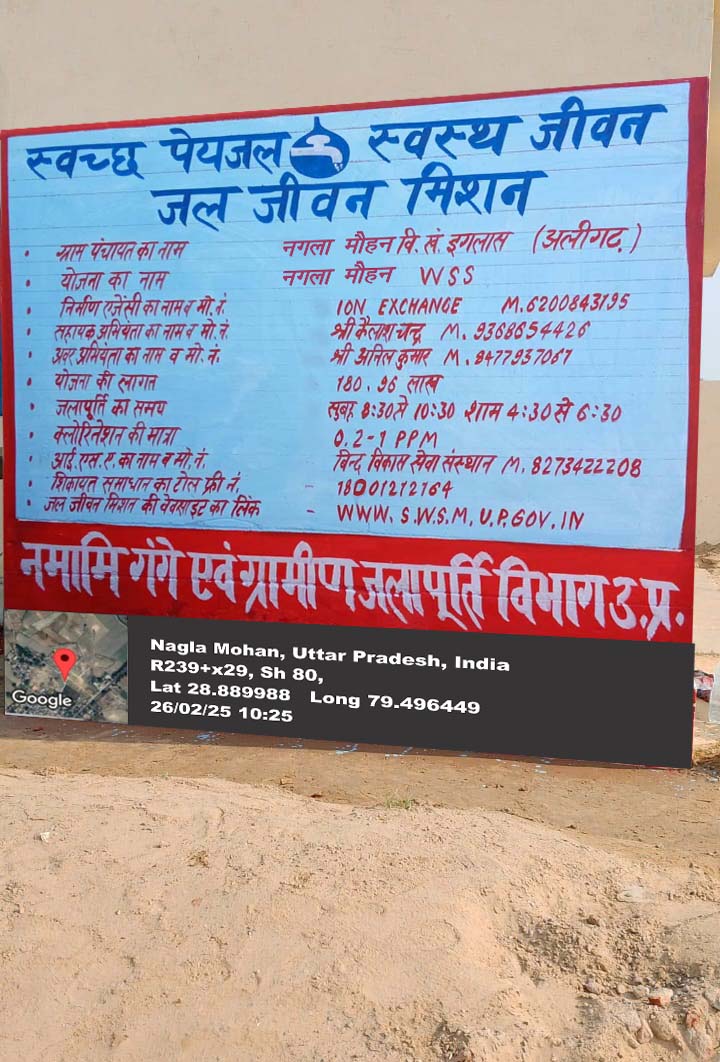 स्वच्छ पेयजल स्वस्थ जीवन
जल जीवन मिशन
• ग्राम पंचायत का नाम नगला मौहन वि. खं. इगलास (अलीगढ़)
• योजना का नाम नगला मौहन WSS
• निर्माण एजेंसी का नाम व मो. नं. ION EXCHANGE M. 6200843195
• सहायक अभियंता का नाम व मो. नं. श्री कैलाश चन्द्र M. 9368654426
• अवर अभियंता का नाम व मो. नं. श्री अनिल कुमार M. 9477937067
• योजना की लागत 180.96 लाख
• जलापूर्ति का समय सुबह 8:30 से 10:30 शाम 4:30 से 6:30
• क्लोरिनेशन की मात्रा 0.2-1 PPM
• आई. एस. ए. का नाम व मो. नं. बिन्द विकास सेवा संस्थान M. 8273422208
• शिकायत समाधान का टोल फ्री नं. - 18001212164
• जल जीवन मिशन की वेबसाइट का लिंक - WWW.SWSM.UP.GOV.IN
नमामि गंगे एवं ग्रामीण जलापूर्ति विभाग उ.प्र.
Google
Nagla Mohan, Uttar Pradesh, India
R239+x29, Sh 80,
Lat 28.889988 Long 79.496449
26/02/25 10:25